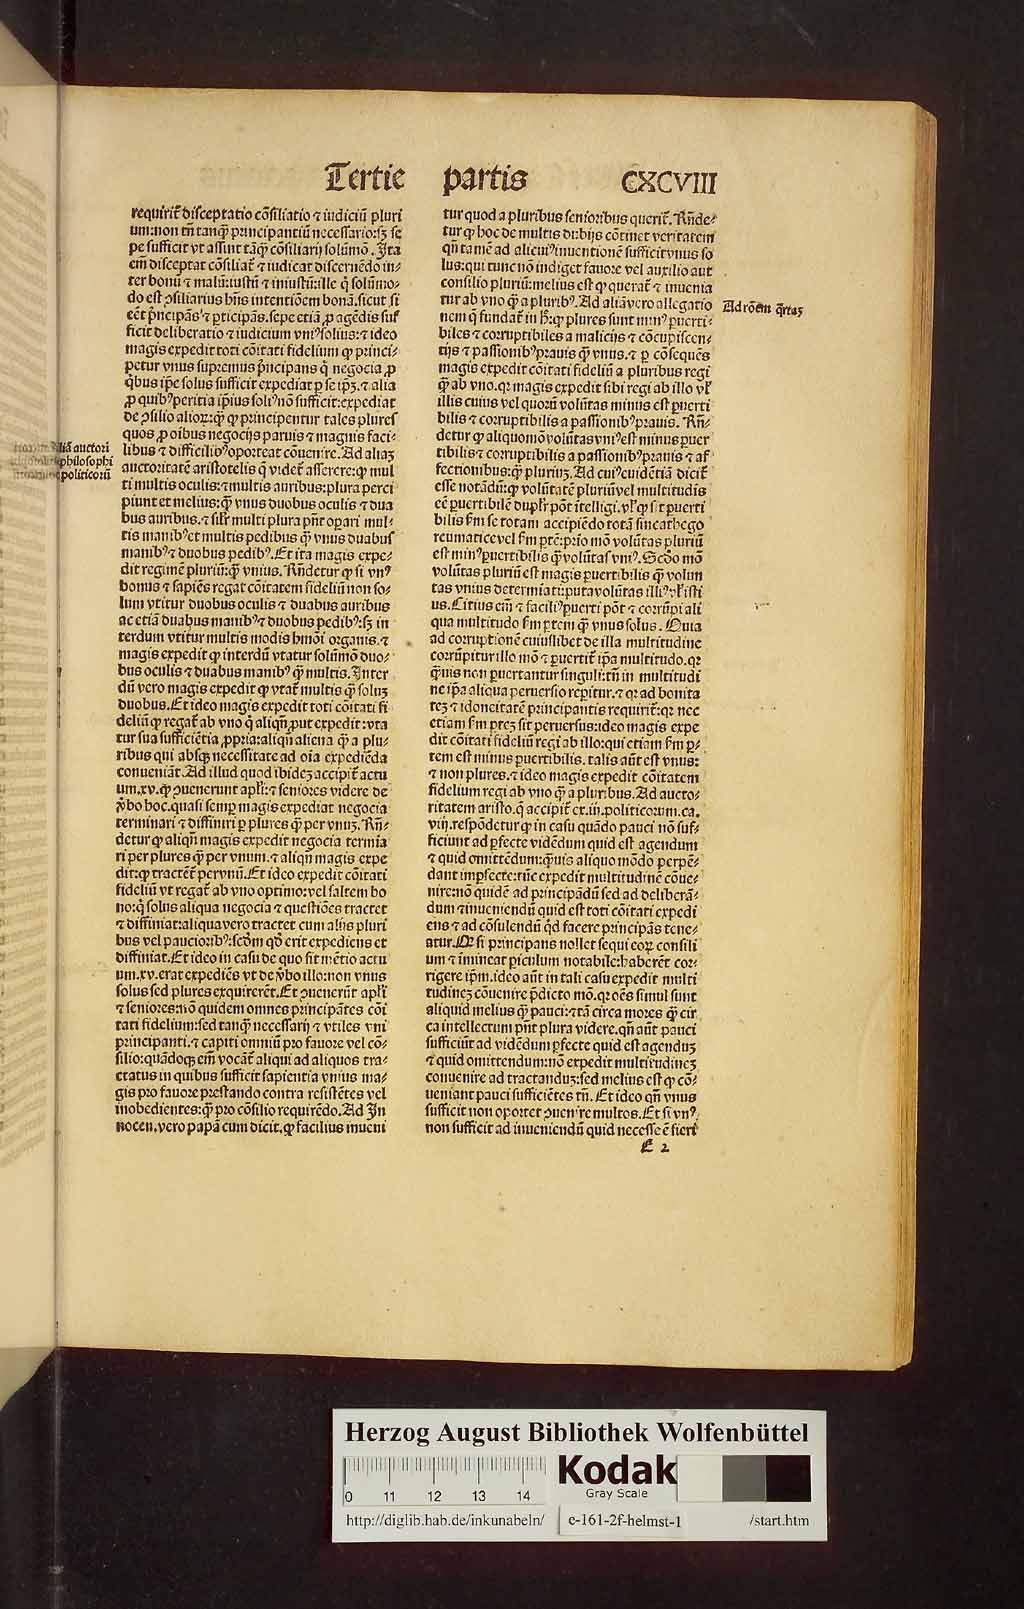 Tertie partis CXCVIII
requirit̃ disceptatio cõsiliatio ⁊ iudiciũ pluri
um: non tñ tanq̃ principantiũ necessario: sꝫ se
pe sufficit vt assint tãq̃ cõsiliarij solũmo. Ita
em̃ disceptat cõsiliat̃ ⁊ iudicat discernẽdo in⸗
ter bonũ ⁊ malũ: iustũ ⁊ iniustũ: ille q̇ solũmo⸗
do est ꝯsiliarius hñs intentiõem bonã. sicut si
eẽt p̃ncipãs ⁊ p̱ticipãs. sepe etiã ꝓ agẽdis suf
ficit deliberatio ⁊ iudicium vniꝰ solius: ⁊ ideo
magis expedit toti cõitati fidelium ꝙ princi⸗
petur vnus supremus p̃ncipans q̇ negocia ꝓ
q̇bus ip̃e solus sufficit expediat ꝑ se ip̃ꝫ. ⁊ alia
ꝓ quibꝰ peritia ip̃ius soliꝰ nõ sufficit: expediat
de ꝯsilio alioꝝ: q̃ ꝙ principentur tales plures
quos ꝓ oibus negocijs paruis ⁊ magnis faci⸗
libus ⁊ difficilibꝰ oporteat cõuenire. Ad aliaꝫ
auctoritatẽ aristotelis q̇ videt̃ asserere: ꝙ mul
ti multis oculis: ⁊ multis auribus: plura perci
piunt et melius: q̃ vnus duobus oculis ⁊ dua
bus auribus. ⁊ sil̃r multi plura pñt oꝑari mul⸗
tis manibꝰ et multis pedibus q̃ vnus duabus
manibꝰ ⁊ duobus pedibꝰ. Et ita magis expe⸗
dit regimẽ pluriũ: q̃ vnius. Rñdetur ꝙ si vnꝰ
bonus ⁊ sapiẽs regat cõitatem fideliũ non so⸗
lum vtitur duobus oculis ⁊ duabus auribus
ac etiã duabus manibꝰ ⁊ duobus pedibꝰ: sꝫ in
terdum vtitur multis modis hmõi organis. ⁊
magis expedit ꝙ interdũ vtatur solũmõ duo⸗
bus oculis ⁊ duabus manibꝰ q̃ multis. Inter
dũ vero magis expedit ꝙ vtat̃ multis q̃ soluꝫ
duobus. Et ideo magis expedit toti cõitati fi
deliũ ꝙ regat̃ ab vno q̇ aliqñ ꝓut expedit: vta
tur sua sufficiẽtia ꝓpria: aliqñ aliena q̃ a plu⸗
ribus qui absqꝫ necessitate ad oĩa expediẽda
conueniãt. Ad illud quod ibideꝫ accipit̃ actu
um. xv. ꝙ ꝯuenerunt apl̃i: ⁊ seniores videre de
v̾bo hoc. quasi semꝑ magis expediat negocia
terminari ⁊ diffiniri ꝑ plures q̃ per vnuꝫ. Rñ⸗
detur ꝙ aliqñ magis expedit negocia termia
ri per plures q̃ per vnum. ⁊ aliqñ magis expe
dit: ꝙ tractẽt̃ per vnũ. Et ideo expedit cõitati
fideliũ vt regat̃ ab vno optimo: vel saltem bo
no: q̇ solus aliqua negocia ⁊ questiões tractet
⁊ diffiniat: aliqua vero tractet cum alijs pluri
bus vel paucioribꝰ: scdm̃ qd̾ erit expediens et
diffiniat. Et ideo in casu de quo sit mẽtio actu
um. xv. erat expediẽs vt de v̾bo illo: non vnus
solus sed plures exquirerẽt. Et ꝯuenerũt apl̃i
⁊ seniores: nõ quidem omnes principãtes cõi
tati fidelium: sed tanq̃ necessarij ⁊ vtiles vni
principanti. ⁊ capiti omniũ pro fauore vel cõ⸗
silio: quãdoqꝫ em̃ vocãt̃ aliqui ad aliquos tra⸗
ctatus in quibus sufficit sapientia vnius ma⸗
gis pro fauore prestando contra resistẽtes vel
inobedientes: q̃ pro cõsilio requirẽdo. Ad In
nocen. vero papã cum dicit. ꝙ facilius inueni
tur quod a pluribus senioribus querit̃. Rñde⸗
tur ꝙ hoc de multis dubijs cõtinet veritatem
qñ tamẽ ad alicuiꝰ inuentionẽ sufficit vnus so
lus: qui tunc nõ indiget fauore vel auxilio aut
consilio pluriũ: melius est ꝙ querat̃ ⁊ inuenia
tur ab vno q̃ a pluribꝰ. Ad aliã vero allegatio
nem q̇ fundat̃ in hͦ: ꝙ plures sunt minꝰ ꝑuerti⸗
biles ⁊ corruptibiles a malicijs ⁊ cõcupiscen⸗
tijs ⁊ passionibꝰ prauis q̃ vnus. ⁊ ꝑ cõsequẽs
magis expedit cõitati fideliũ a pluribus regi
q̃ ab vno. qꝛ magis expedit sibi regi ab illo vl̾
illis cuius vel quorũ volũtas minus est ꝑuerti
bilis ⁊ corruptibilis a passionibꝰ prauis. Rñ⸗
detur ꝙ aliquomõ volũtas vniꝰ est minus ꝑuer
tibilis ⁊ corruptibilis a passionibꝰ prauis ⁊ af
fectionibus: q̃ pluriuꝫ. Ad cuiꝰ euidẽtiã dicit̃
esse notãdũ: ꝙ volũtatẽ pluriũ vel multitudis
eẽ ꝑuertibilẽ dupl̃r põt ĩtelligi. vl̾ ꝙ sit ꝑuerti
bilis fm se totam accipiẽdo totã sincathego
reumatice vel fm ptẽ: prio mõ volũtas pluriũ
est minꝰ ꝑuertibilis q̃ volũtas vniꝰ. Scdo mõ
volũtas pluriũ est magis ꝑuertibilis q̃ volun
tas vnius determiati: puta volũtas illiꝰ vl̾ isti
us. Citius em̃ ⁊ faciliꝰ ꝑuerti põt ⁊ corrũpi ali
qua multitudo fm ꝑtem q̃ vnus solus. Quia
ad corruptionẽ cuiuslibet de illa multitudine
corrũpitur illo mõ ⁊ ꝑuertit̃ ip̃a multitudo. qꝛ
q̃uis non ꝑuertantur singuli: tñ in multitudi
ne ip̃a aliqua peruersio repitur. ⁊ qꝛ ad bonita
teꝫ ⁊ idoneitatẽ principantis requirit̃: qꝛ nec
etiam fm ꝑteꝫ sit peruersus: ideo magis expe
dit cõitati fideliũ regi ab illo: qui etiam fm ꝑ⸗
tem est minus ꝑuertibilis. talis aũt est vnus:
⁊ non plures. ⁊ ideo magis expedit cõitatem
fidelium regi ab vno q̃ a pluribus. Ad aucto⸗
ritatem aristo. q̇ accipit̃ ex. iij. politicorum. ca.
viij. respõdetur ꝙ in casu quãdo pauci nõ suf⸗
ficiunt ad ꝑfecte vidẽdum quid est agendum
⁊ quid omittẽdum: q̃uis aliquo mõdo perpẽ⸗
dant impfecte: tũc expedit multitudinẽ cõue⸗
nire: nõ quidẽ ad principãdũ sed ad deliberã⸗
dum ⁊ inueniendũ quid est toti cõitati expedi
ens ⁊ ad cõsulendũ q̇d facere principãs tene⸗
atur. Qꝛ si principans nollet sequi eoꝝ consili
um ⁊ ĩmineat ꝑiculum notabile: haberẽt cor⸗
rigere ip̃m. ideo aũt in tali casu expedit multi
tudineꝫ cõuenire p̃dicto mõ. qꝛ oẽs simul sunt
aliquid melius q̃ pauci: ⁊ tã circa mores q̃ cir
ca intellectum pñt plura videre. qñ aũt pauci
sufficiũt ad vidẽdum ꝑfecte quid est agenduꝫ
⁊ quid omittendum: nõ expedit multitudineꝫ
conuenire ad tractanduꝫ: sed melius est ꝙ cõ⸗
ueniant pauci sufficiẽtes tñ. Et ideo qñ vnus
sufficit non oportet ꝯuenire multos. Et si vnꝰ
non sufficit ad inueniendũ quid necesse ẽ fieri
E 2
Ad rõem q̃rtaꝫ
liã auctori
philosophi
politicorũ
Herzog August Bibliothek Wolfenbüttel
0 11 12 13 14
Kodak
Gray Scale
http://diglib.hab.de/inkunabeln/ e-161-2f-helmst-1 /start.htm